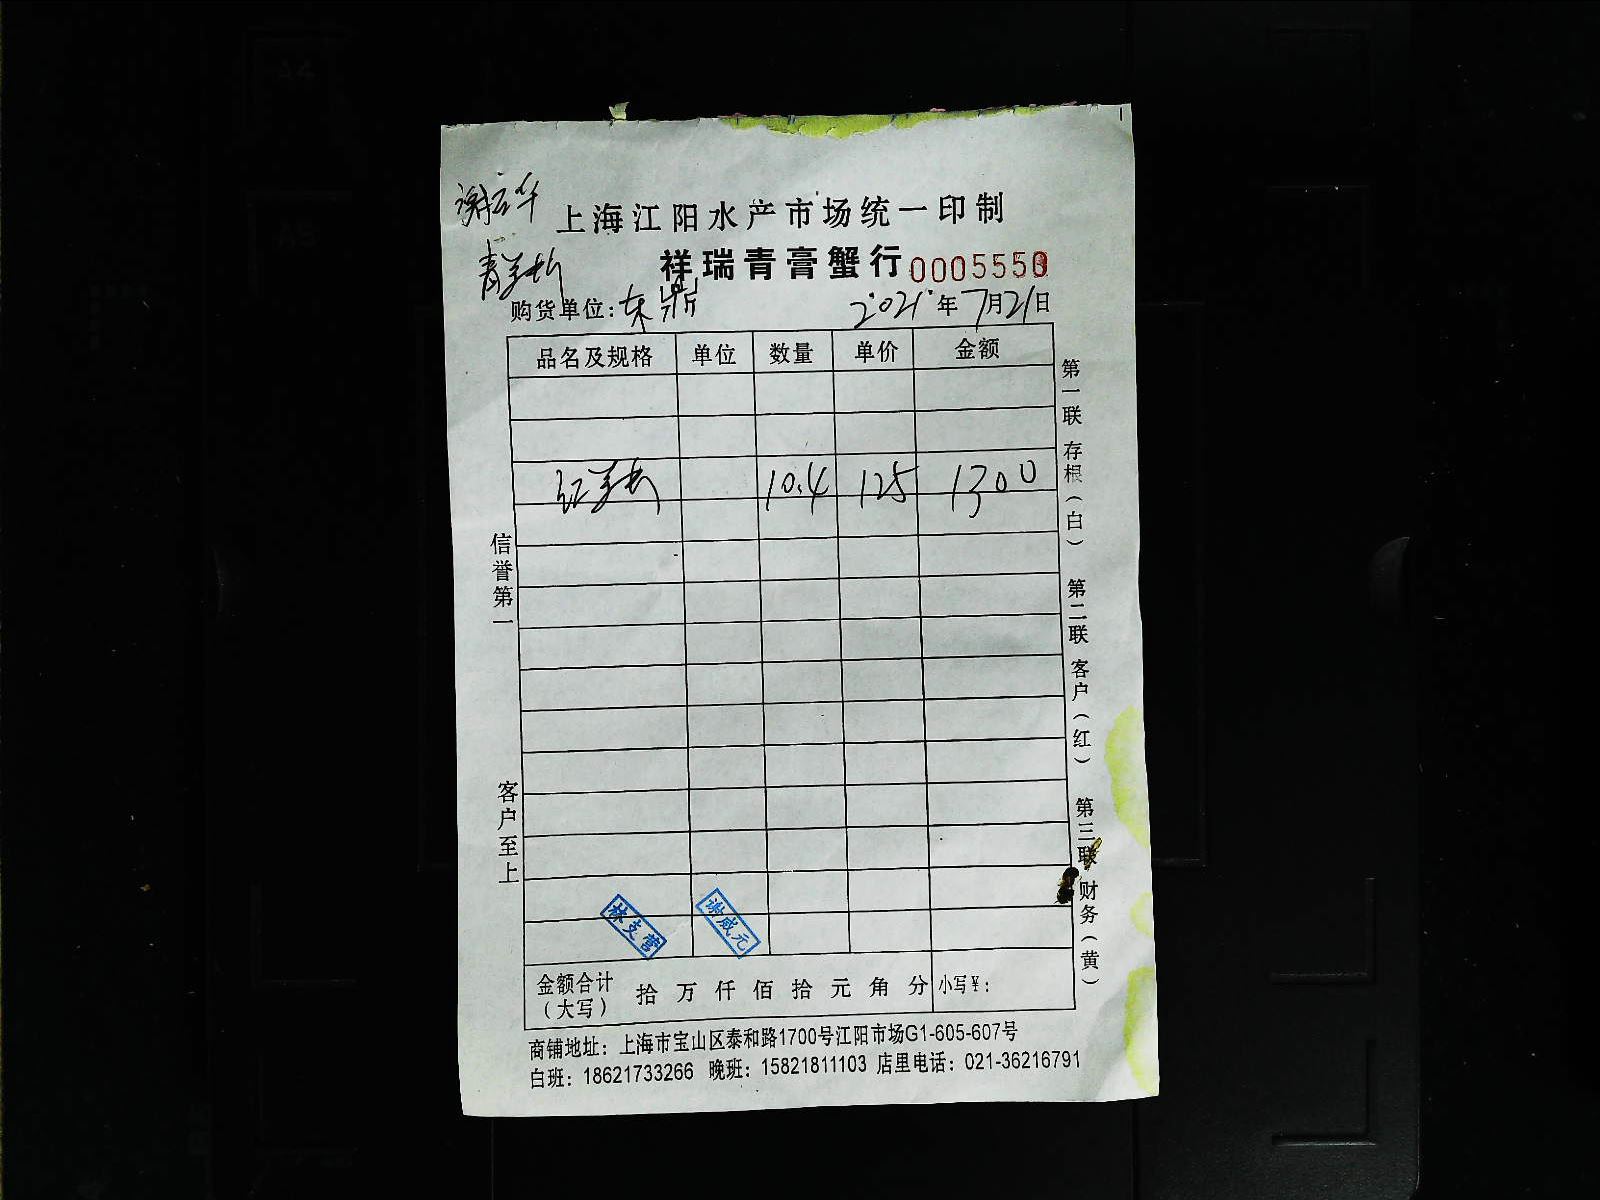 上海江阳水产市场统一印制
祥瑞青膏蟹行 000555
购货单位：东鼎 2021年7月21日
品名及规格 单位 数量 单价 金额
10.4 125 1300
金额合计（大写） 拾 万 仟 佰 拾 元 角 分 小写¥：
商铺地址：上海市宝山区泰和路1700号江阳市场G1-605-607号
白班：18621733266 晚班：15821811103 店里电话：021-36216791
信誉第一
客户至上
第一联 存根（白）
第二联 客户（红）
第三联 财务（黄）
林支营
谢咸元